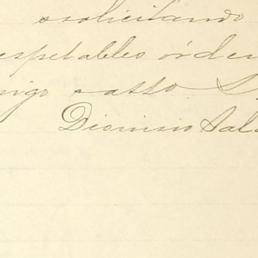 solicitando
espetables órden
migo atto S.
Dionisio Sal